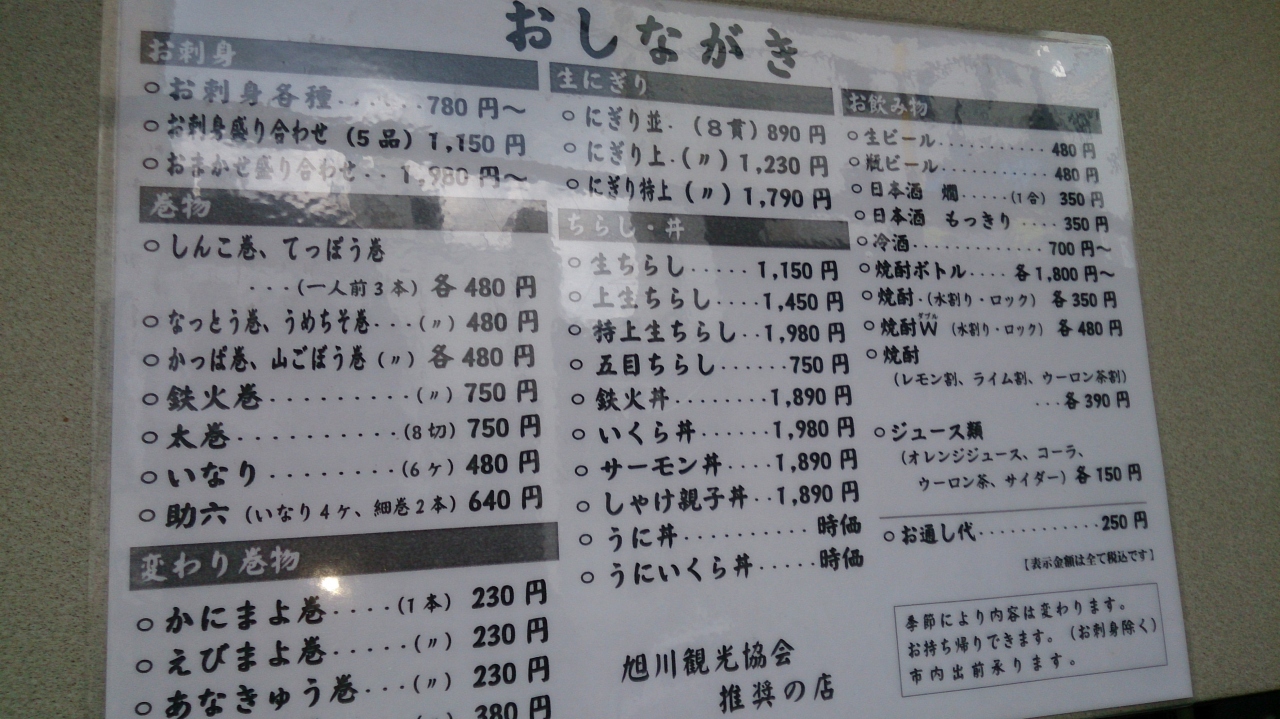 おしながき
お刺身
○お刺身各種......780円～
○お刺身盛り合わせ(5品)1,150円
○おまかせ盛り合わせ..1,980円～
巻物
○しんこ巻、てっぽう巻
...(一人前3本)各480円
○なっとう巻、うめちそ巻...(〃)480円
○かっぱ巻、山ごぼう巻(〃)各480円
○鉄火巻........(〃)750円
○太巻..........(8切)750円
○いなり........(6ケ)480円
○助六(いなり4ケ、細巻2本)640円
変わり巻物
○かにまよ巻....(1本)230円
○えびまよ巻....(〃)230円
○あなきゅう巻...(〃)230円
380円
生にぎり
○にぎり並.(8貫)890円
○にぎり上.(〃)1,230円
○にぎり特上(〃)1,790円
ちらし・丼
○生ちらし.....1,150円
○上生ちらし....1,450円
○特上生ちらし..1,980円
○五目ちらし.....750円
○鉄火丼........1,890円
○いくら丼......1,980円
○サーモン丼....1,890円
○しゃけ親子丼..1,890円
○うに丼..........時価
○うにいくら丼.....時価
旭川観光協会
推奨の店
お飲み物
○生ビール...........480円
○瓶ビール...........480円
○日本酒 燗.....(1合)350円
○日本酒 もっきり....350円
○冷酒.............700円～
○焼酎ボトル....各1,800円～
○焼酎.(水割り・ロック)各350円
○焼酎W(ダブル)(水割り・ロック)各480円
○焼酎
(レモン割、ライム割、ウーロン茶割)
...各390円
○ジュース類
(オレンジジュース、コーラ、
ウーロン茶、サイダー)各150円
○お通し代............250円
【表示金額は全て税込です】
季節により内容は変わります。
お持ち帰りできます。(お刺身除く)
市内出前承ります。